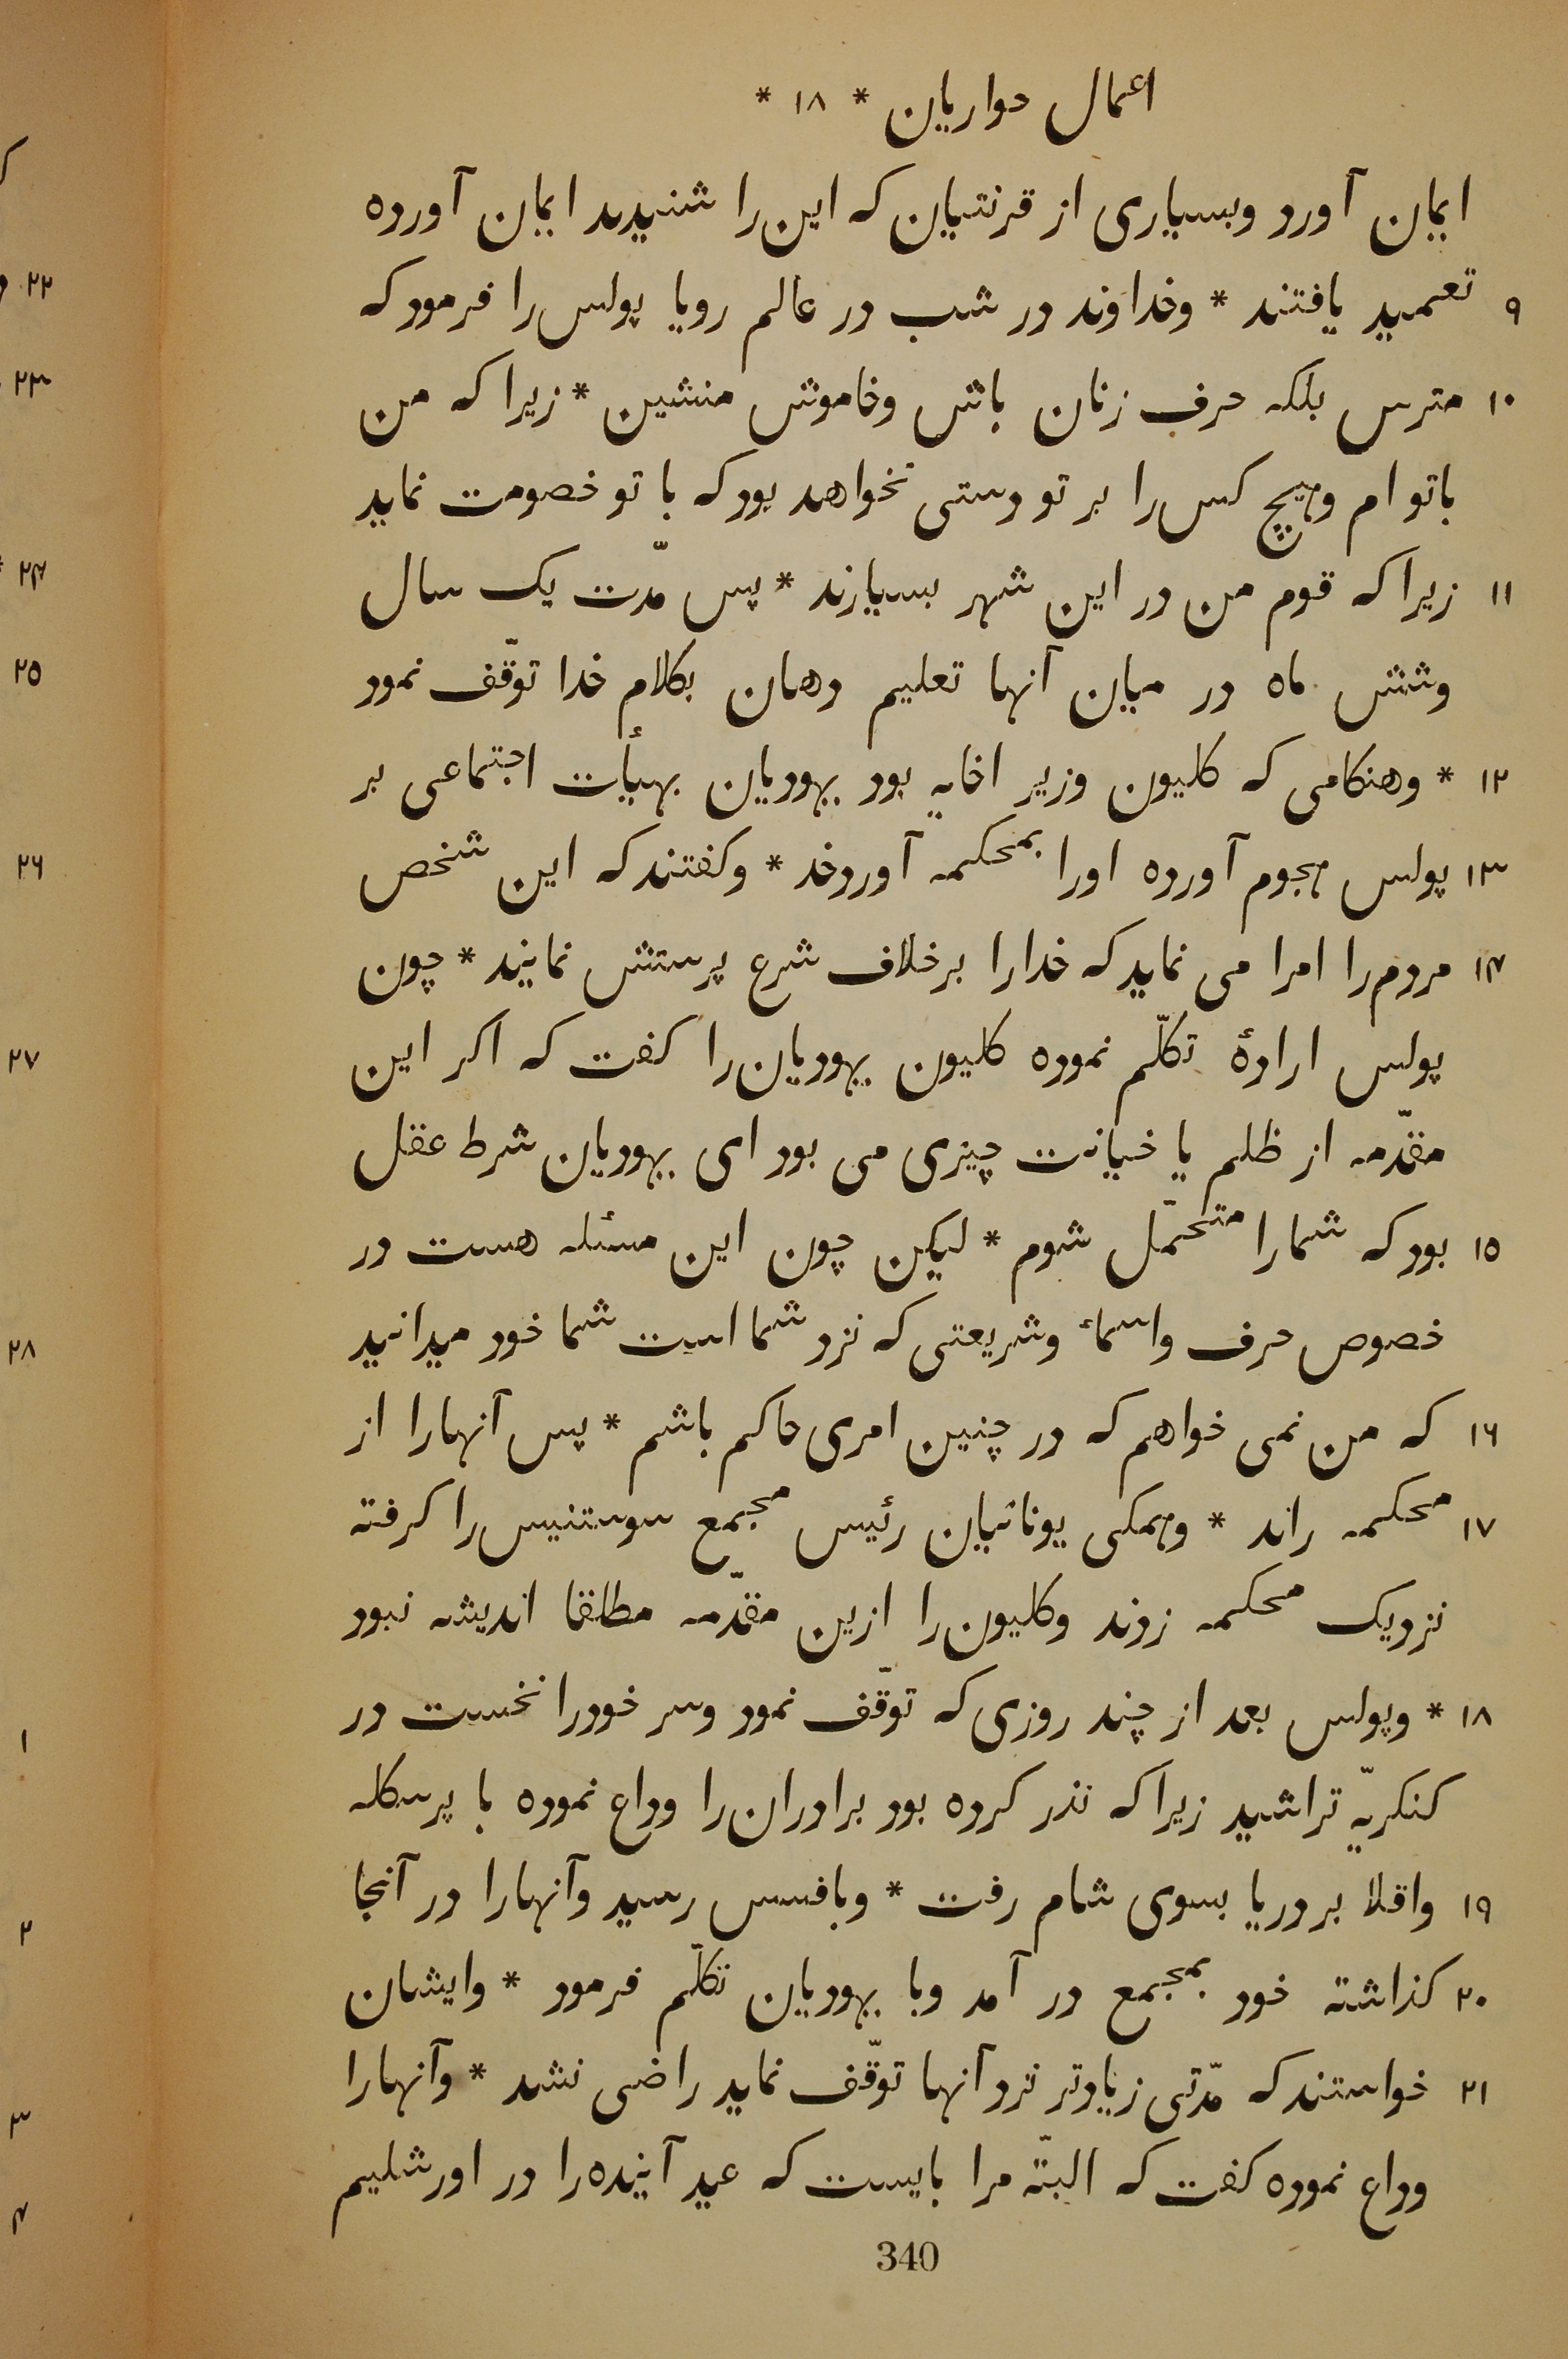 اعمال حواریان * ۱۸ *
ایمان آورد وبسیاری از قرنتیان که این را شنیدند ایمان آورده
۹ تعمید یافتند * وخداوند در شب در عالم رویا پولس را فرمود که
۱۰ مترس بلکه حرف زنان باش وخاموش منشین * زیرا که من
باتو ام وهیچ کس را بر تو دستی نخواهد بود که با تو خصومت نماید
۱۱ زیرا که قوم من در این شهر بسیارند * پس مدّت یک سال
وشش ماه در میان آنها تعلیم دهان بکلام خدا توقّف نمود
۱۲ * وهنکامی که کلیون وزیر اخایه بود یهودیان بهیأت اجتماعی بر
۱۳ پولس هجوم آورده اورا بمحکمه آوردند * وکفتند که این شخص
۱۴ مردم را امرا می نماید که خدارا برخلاف شرع پرستش نمایند * چون
پولس ارادهٔ تکلّم نموده کلیون یهودیان را کفت که اکر این
مقدّمه از ظلم یا خیانت چیزی می بود ای یهودیان شرط عقل
۱۵ بود که شمارا متحمّل شوم * لیکن چون این مسئله هست در
خصوص حرف واسماء وشریعتی که نزد شما است شما خود میدانید
۱۶ که من نمی خواهم که در چنین امری حاکم باشم * پس آنهارا از
۱۷ محکمه راند * وهمکی یونانیان رئیس مجمع سوستنیس را کرفته
نزدیک محکمه زدند وکلیون را ازین مقدّمه مطلقا اندیشه نبود
۱۸ * وپولس بعد از چند روزی که توقّف نمود وسر خودرا نخست در
کنکریّه تراشید زیرا که نذر کرده بود برادران را وداع نموده با پرسکله
۱۹ واقلا بر دریا بسوی شام رفت * وبافسس رسید وآنهارا در آنجا
۲۰ کذاشته خود بمجمع در آمد وبا یهودیان تکلّم فرمود * وایشان
۲۱ خواستند که مدّتی زیادتر نزد آنها توقّف نماید راضی نشد * وآنهارا
وداع نموده کفت که البتّه مرا بایست که عید آینده را در اورشلیم
340
۲۲
۲۳
۲۴
۲۵
۲۶
۲۷
۲۸
۱
۲
۳
۴